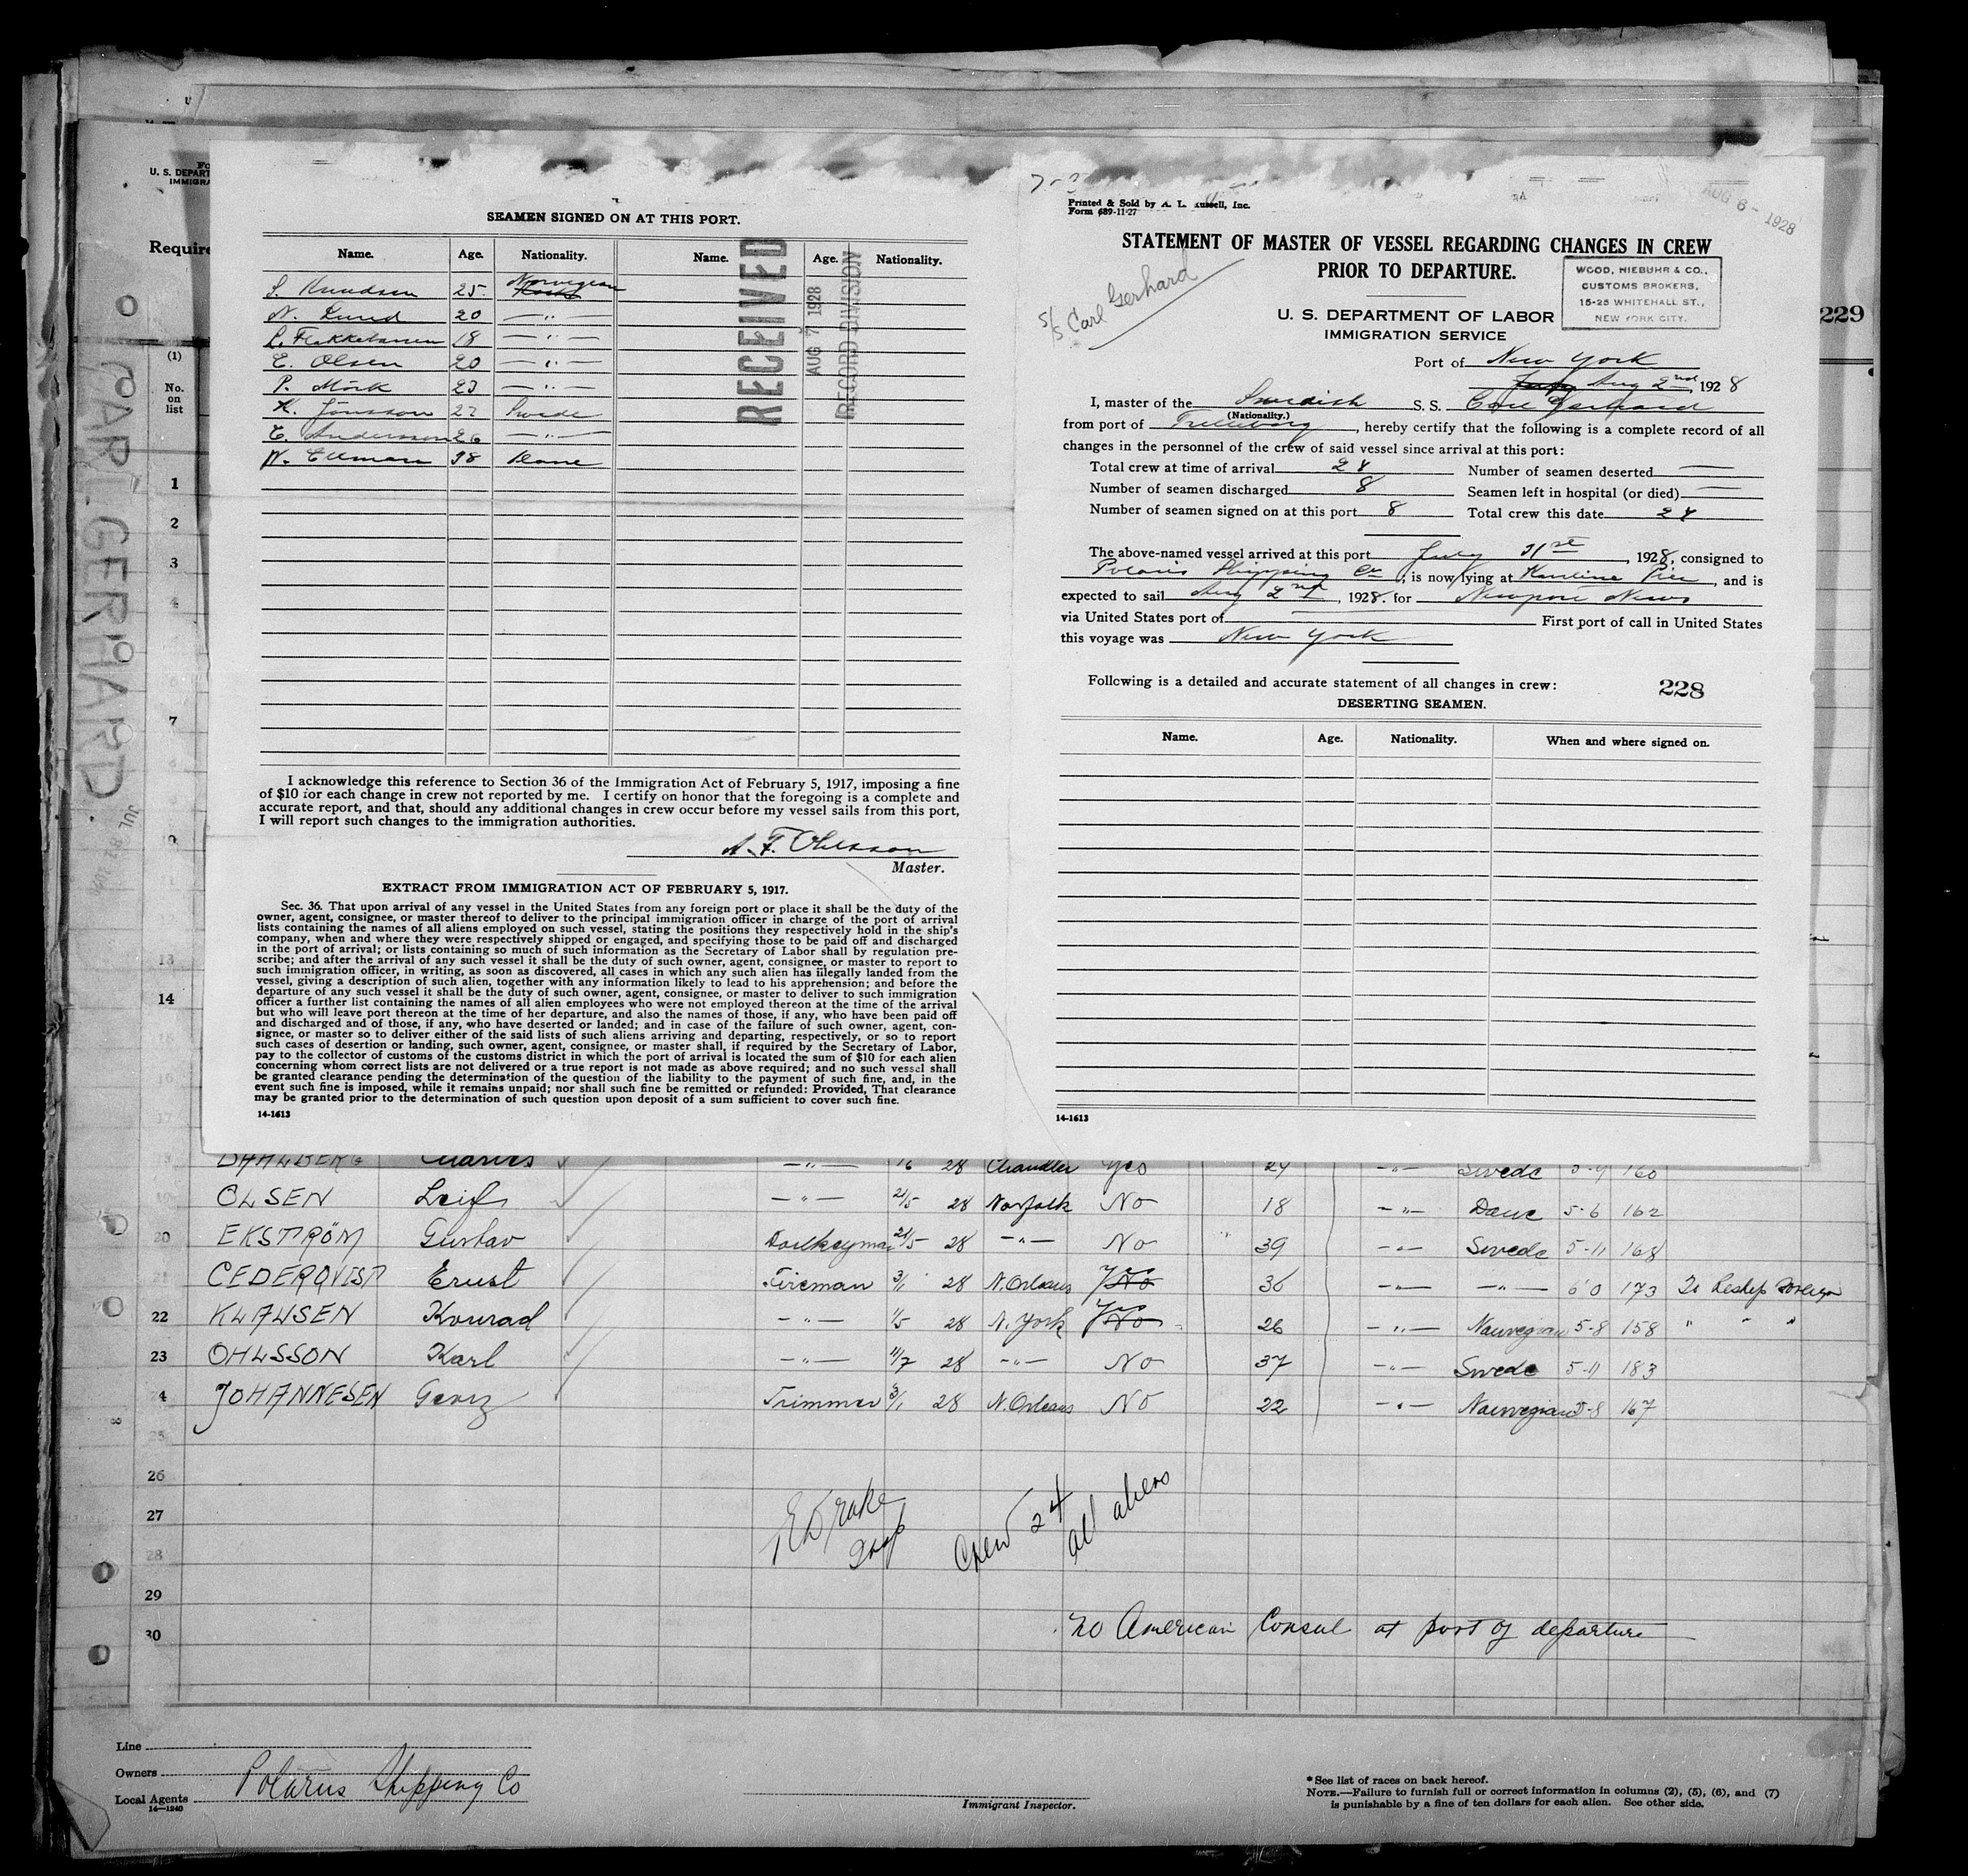 SEAMEN SIGNED ON AT THIS PORT.
Name. Age. Nationality. Name. Age. Nationality.
S. Knudsen 25 Norwegian
N. Lund 20 — " —
18 — " —
E. Olsen 20 — " —
P. Mörk 23 — " —
K. Jönsson 27 Swede
E. Andersson 26 — " —
W. Ellman 38 Dane
RECEIVED
AUG 7 1928
RECORD DIVISION
I acknowledge this reference to Section 36 of the Immigration Act of February 5, 1917, imposing a fine
of $10 for each change in crew not reported by me. I certify on honor that the foregoing is a complete and
accurate report, and that, should any additional changes in crew occur before my vessel sails from this port,
I will report such changes to the immigration authorities.
A. F. Ohlsson
Master.
EXTRACT FROM IMMIGRATION ACT OF FEBRUARY 5, 1917.
Sec. 36. That upon arrival of any vessel in the United States from any foreign port or place it shall be the duty of the
owner, agent, consignee, or master thereof to deliver to the principal immigration officer in charge of the port of arrival
lists containing the names of all aliens employed on such vessel, stating the positions they respectively hold in the ship's
company, when and where they were respectively shipped or engaged, and specifying those to be paid off and discharged
in the port of arrival; or lists containing so much of such information as the Secretary of Labor shall by regulation pre-
scribe; and after the arrival of any such vessel it shall be the duty of such owner, agent, consignee, or master to report to
such immigration officer, in writing, as soon as discovered, all cases in which any such alien has illegally landed from the
vessel, giving a description of such alien, together with any information likely to lead to his apprehension; and before the
departure of any such vessel it shall be the duty of such owner, agent, consignee, or master to deliver to such immigration
officer a further list containing the names of all alien employees who were not employed thereon at the time of the arrival
but who will leave port thereon at the time of her departure, and also the names of those, if any, who have been paid off
and discharged and of those, if any, who have deserted or landed; and in case of the failure of such owner, agent, con-
signee, or master so to deliver either of the said lists of such aliens arriving and departing, respectively, or so to report
such cases of desertion or landing, such owner, agent, consignee, or master shall, if required by the Secretary of Labor,
pay to the collector of customs of the customs district in which the port of arrival is located the sum of $10 for each alien
concerning whom correct lists are not delivered or a true report is not made as above required; and no such vessel shall
be granted clearance pending the determination of the question of the liability to the payment of such fine, and, in the
event such fine is imposed, while it remains unpaid; nor shall such fine be remitted or refunded: Provided, That clearance
may be granted prior to the determination of such question upon deposit of a sum sufficient to cover such fine.
14-1613
Printed & Sold by A. L. Russell, Inc.
Form 689-11-27
AUG 6 - 1928
STATEMENT OF MASTER OF VESSEL REGARDING CHANGES IN CREW
PRIOR TO DEPARTURE.
S/S Carl Gerhard
WOOD, NIEBUHR & CO.,
CUSTOMS BROKERS,
15-25 WHITEHALL ST.,
NEW YORK CITY.
U. S. DEPARTMENT OF LABOR
IMMIGRATION SERVICE
Port of New York
Aug 2nd, 1928
I, master of the Swedish S. S. Carl Gerhard
(Nationality.)
from port of Trelleborg, hereby certify that the following is a complete record of all
changes in the personnel of the crew of said vessel since arrival at this port:
Total crew at time of arrival 24 Number of seamen deserted —
Number of seamen discharged 8 Seamen left in hospital (or died) —
Number of seamen signed on at this port 8 Total crew this date 24
The above-named vessel arrived at this port July 31st, 1928, consigned to
Polaris Shipping Co, is now lying at Pier, and is
expected to sail Aug 2nd, 1928. for Newport News
via United States port of — First port of call in United States
this voyage was New York
Following is a detailed and accurate statement of all changes in crew: 228
DESERTING SEAMEN.
Name. Age. Nationality. When and where signed on.
14-1613
U. S. DEPART
IMMIGRA
Require
229
(1)
No.
on
list
1
2
3
4
7
13
14
16
CARL GERHARD
DAHLBERG — " — 16 28 Chandler Yes 24 — " — Swede 5-9 160
OLSEN Leif — " — 21/5 28 Norfolk No 18 — " — Dane 5-6 162
20 EKSTRÖM Gustav Donkeyman 21/5 28 — " — No 39 — " — Swede 5-11 168
21 CEDERQVIST Ernst Fireman 3/1 28 N. Orleans Yes No 36 — " — — " — 6-0 173 To Reship Foreign
22 KLAUSEN Konrad — " — 1/5 28 N. York Yes No 26 — " — Norwegian 5-8 158 " " "
23 OHLSSON Karl — " — 11/7 28 — " — No 37 — " — Swede 5-11 183
24 JOHANNESEN Georg Trimmer 3/1 28 N. Orleans No 22 — " — Norwegian 5-8 167
25
26
27
28
29
30
Drake
Insp
Crew 24
all aliens
No American Consul at port of departure
Line
Owners
Local Agents Polarus Shipping Co
14—1240
Immigrant Inspector.
*See list of races on back hereof.
NOTE.—Failure to furnish full or correct information in columns (2), (5), (6), and (7)
is punishable by a fine of ten dollars for each alien. See other side.